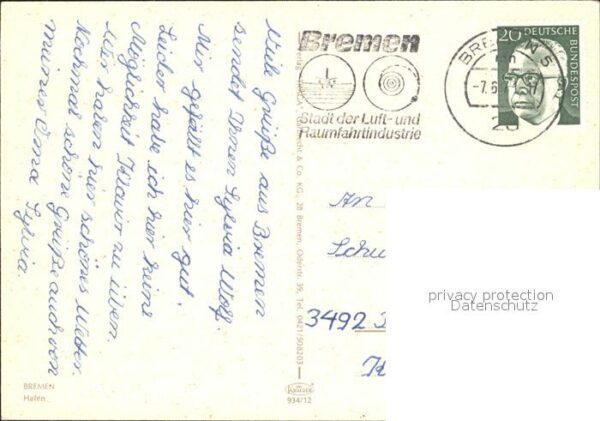 Viele Grüße aus Bremen
sendet Ihnen Sylvia Wolf.
Mir gefällt es hier gut.
Leider habe ich hier keine
Möglichkeit Klavier zu üben.
Wir haben hier schönes Wetter.
Nochmal schöne Grüße auch von
meiner Oma Sylvia.
BREMEN
Hafen
Bremen
Stadt der Luft- und
Raumfahrtindustrie
BREMEN 5
20
20
DEUTSCHE
BUNDESPOST
& Co. KG., 28 Bremen, Tel. 0421/508203
KRÜGER
934/12
An
3492
privacy protection
Datenschutz